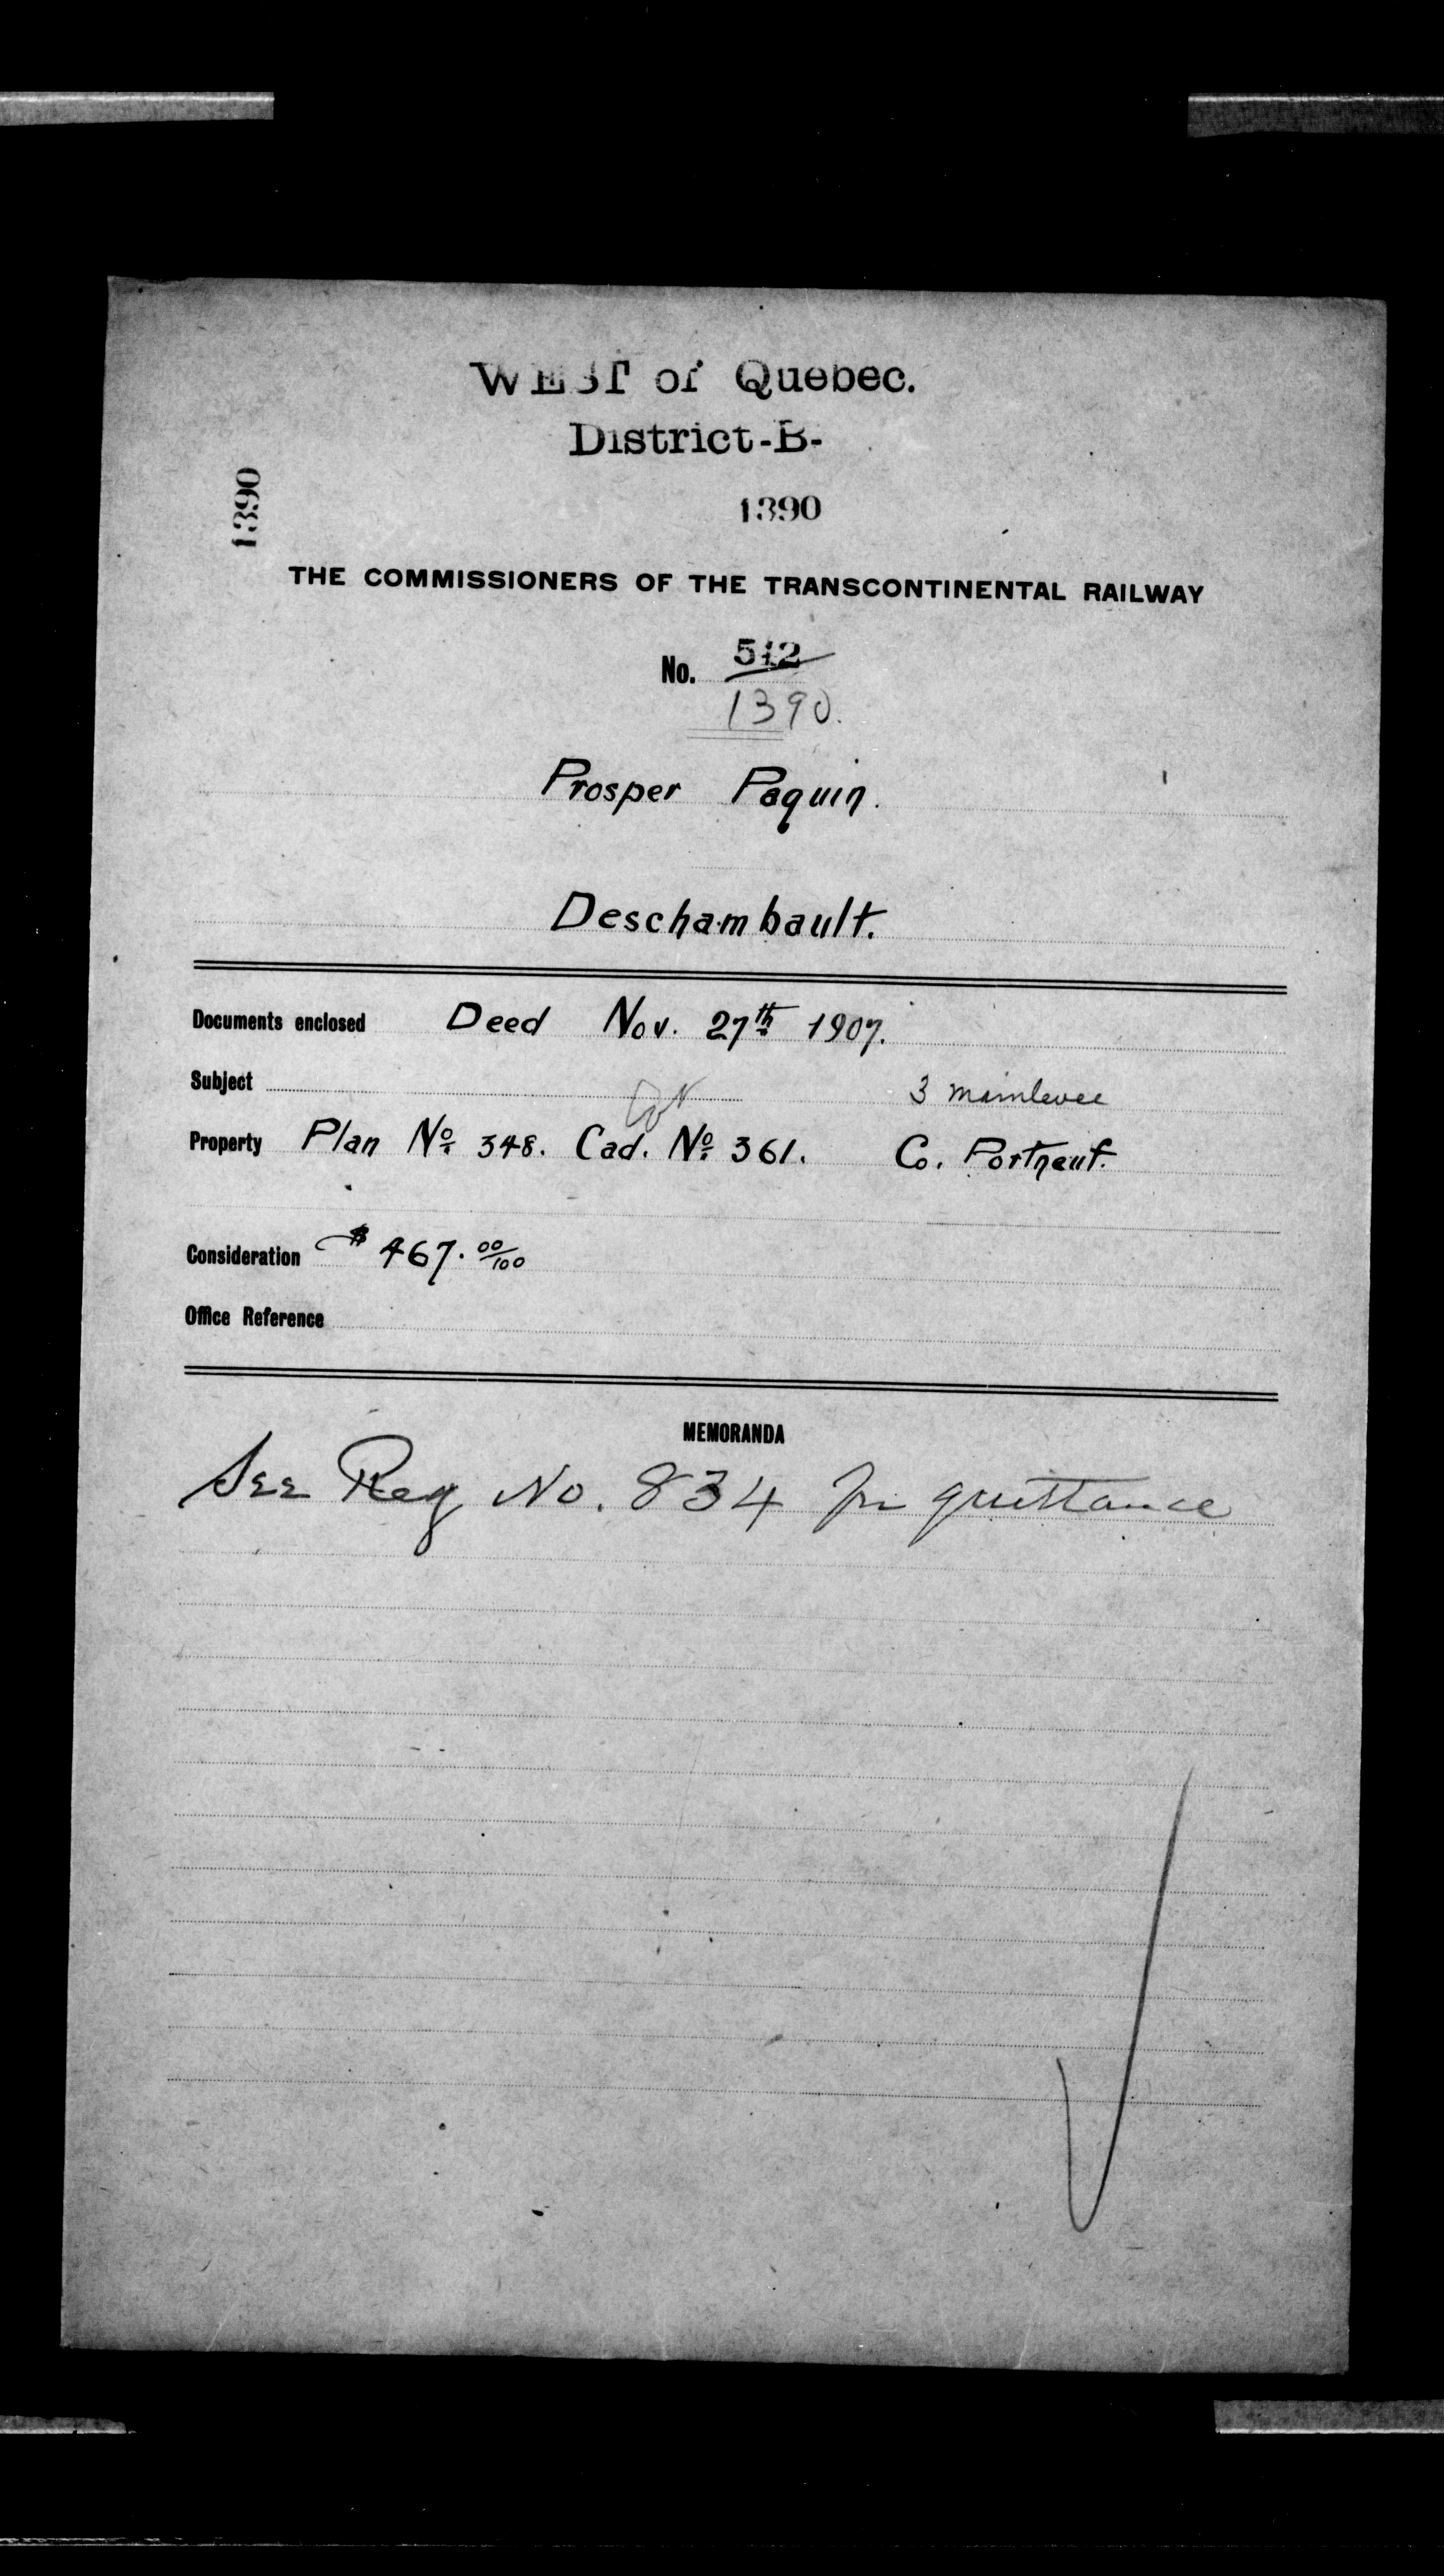 WEST of Quebec.
District-B-
1390
1390
THE COMMISSIONERS OF THE TRANSCONTINENTAL RAILWAY
No. 542
1390.
Prosper Paquin.
Deschambault.
Documents enclosed Deed Nov. 27th 1907.
Subject 3 mainlevee
Lot
Property Plan No. 348. Cad. No. 361. Co. Portneuf.
Consideration $467.00/100
Office Reference
MEMORANDA
See Reg No. 834 for quittance